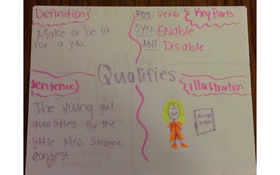 Definition
Make or be fit
for a job.
POS: verb
SYN: Enable
ANT: Disable.
Key Parts
Qualifies
Sentence
The young girl
qualifies for the
little Miss Sunshine
contest.
Illustration